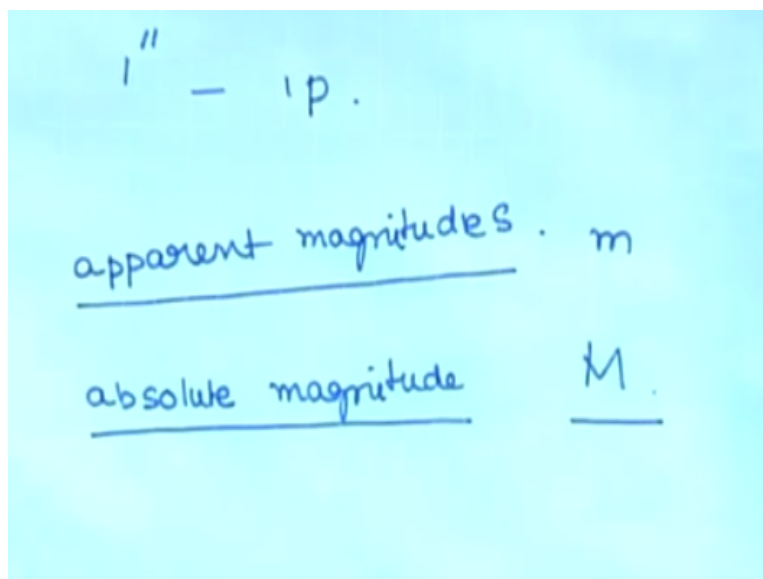 1" - 1p.
apparent magnitudes. m
absolute magnitude M.